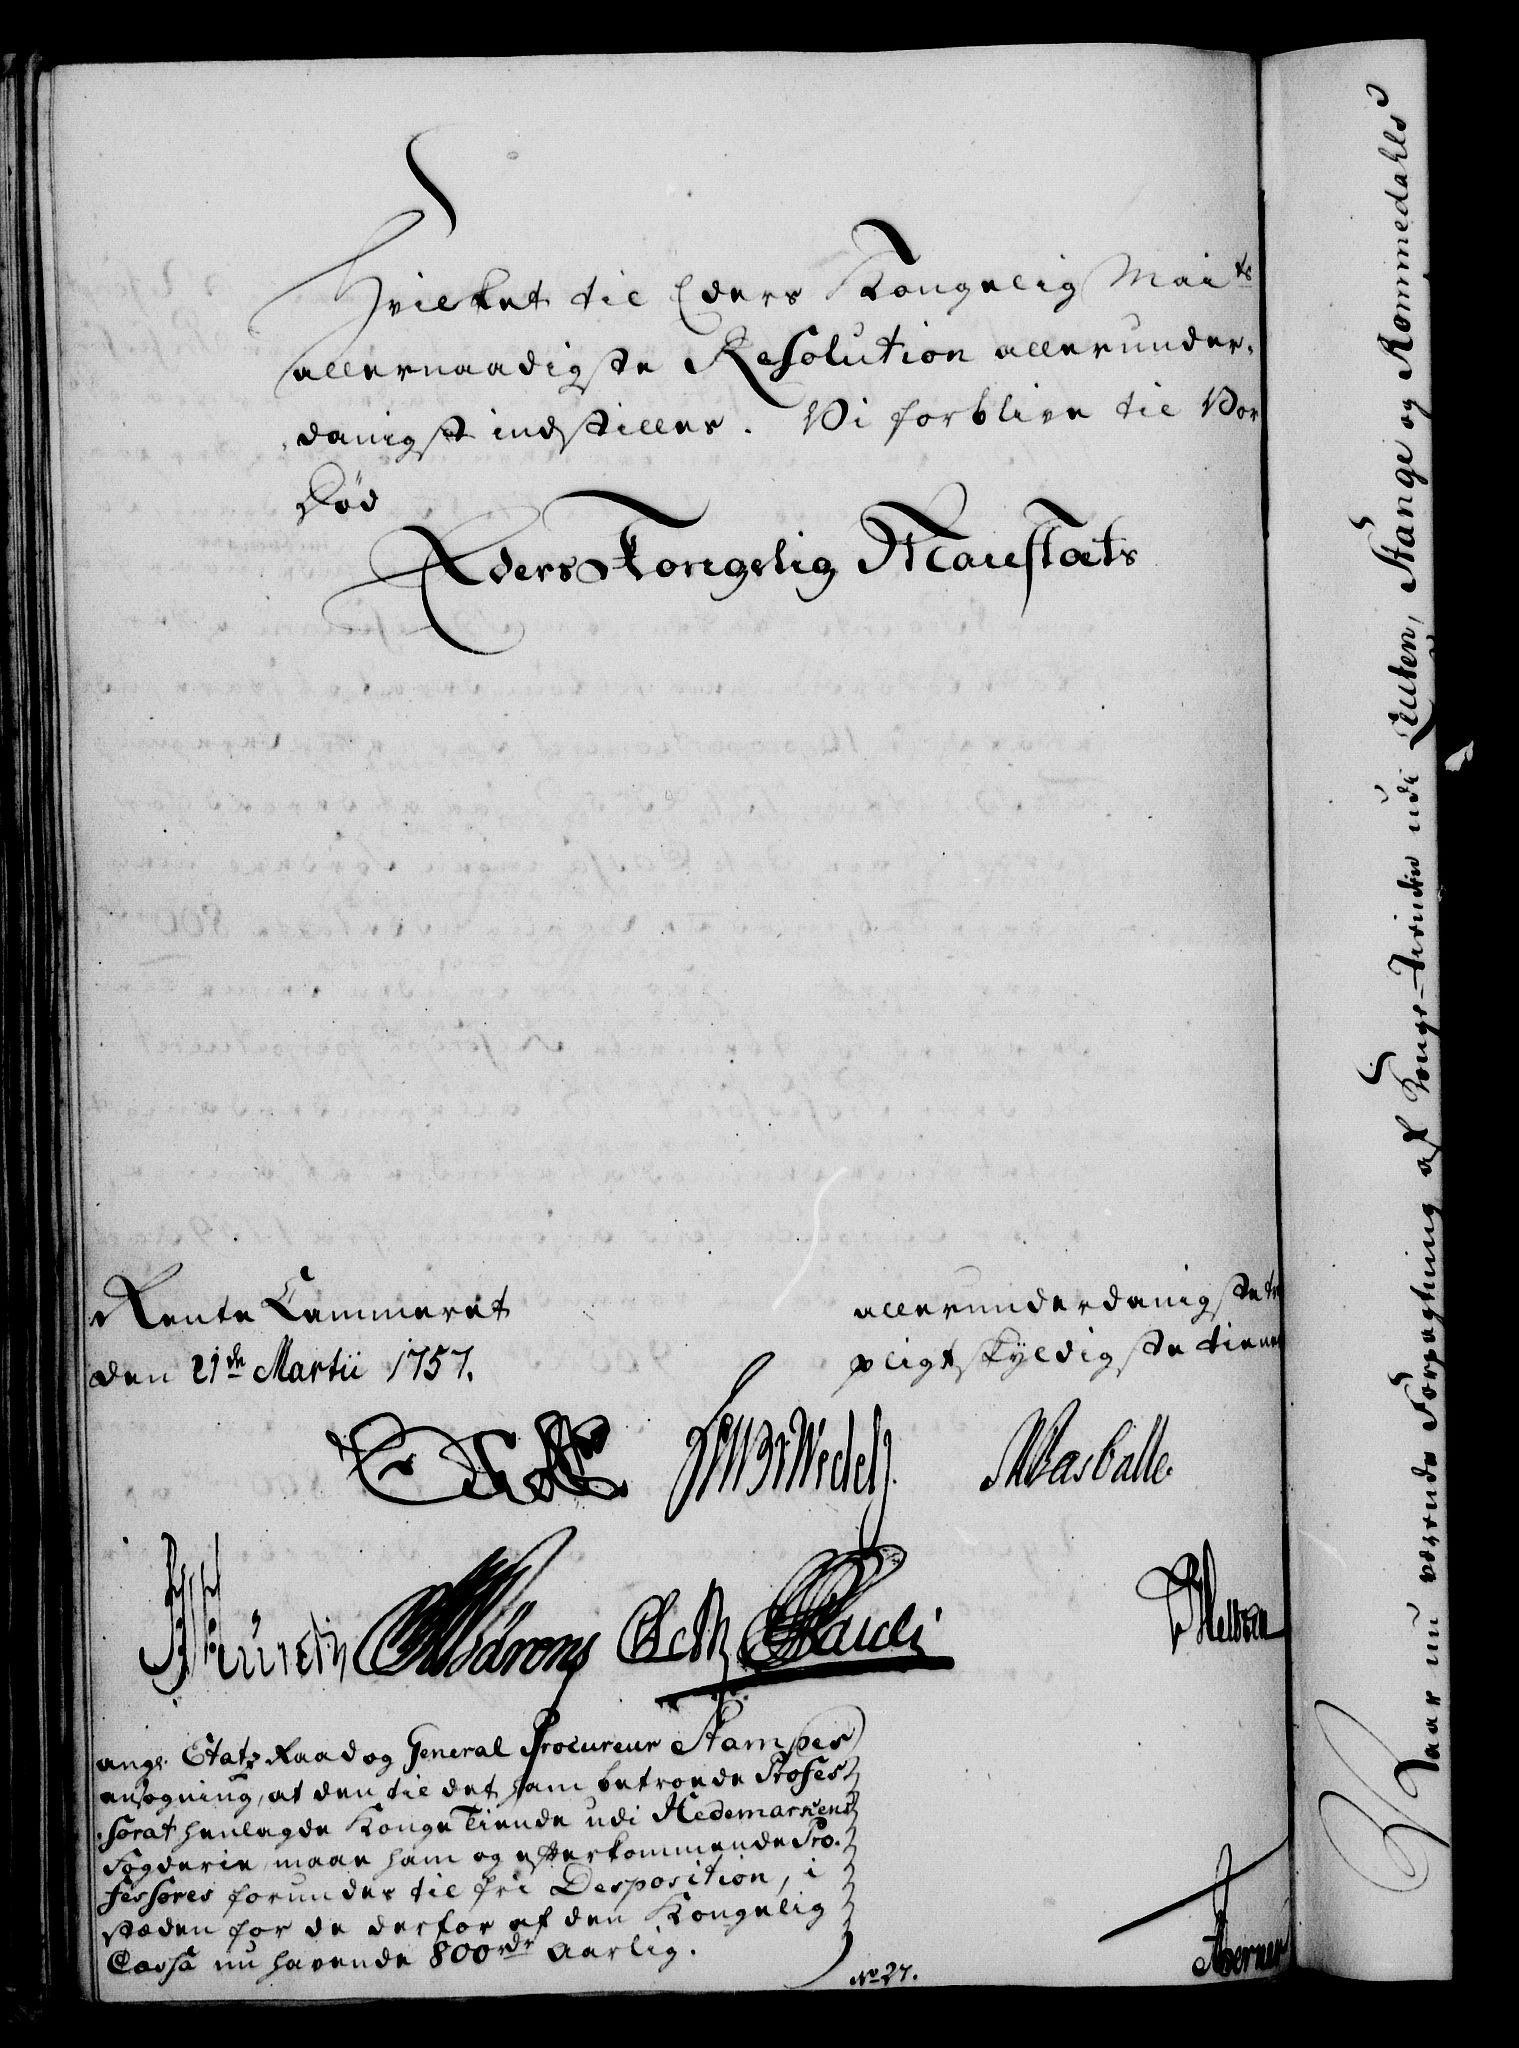 Hvilket til Eders Kongelig Maits
allernaadigste Resolution allerunder-
danigst indstilles. Vi forblive til Vor
Død
Eders Kongelig Maiestæts
Rente Cammeret
den 21de Martii 1757.
allerunderdanigste
pligtskyldigste tiene
Wedell.
Masballe.
Pauli
ang: Etatz Raad og General Procureur Stampes
ansøgning, at den til det ham betroede Profes
sorat henlagde Konge Tiende udi Hedemarkens
Fogderie, maae ham og efterkommende Pro-
fessores forundes til fri Desposition, i
stæden for de derfor af den Kongelig
Cassa nu havende 800 rdr aarlig.
No 27.
Naar nu værende Forpagtning af Konge-Tienden udi Leuten, Stange og Rommedahls